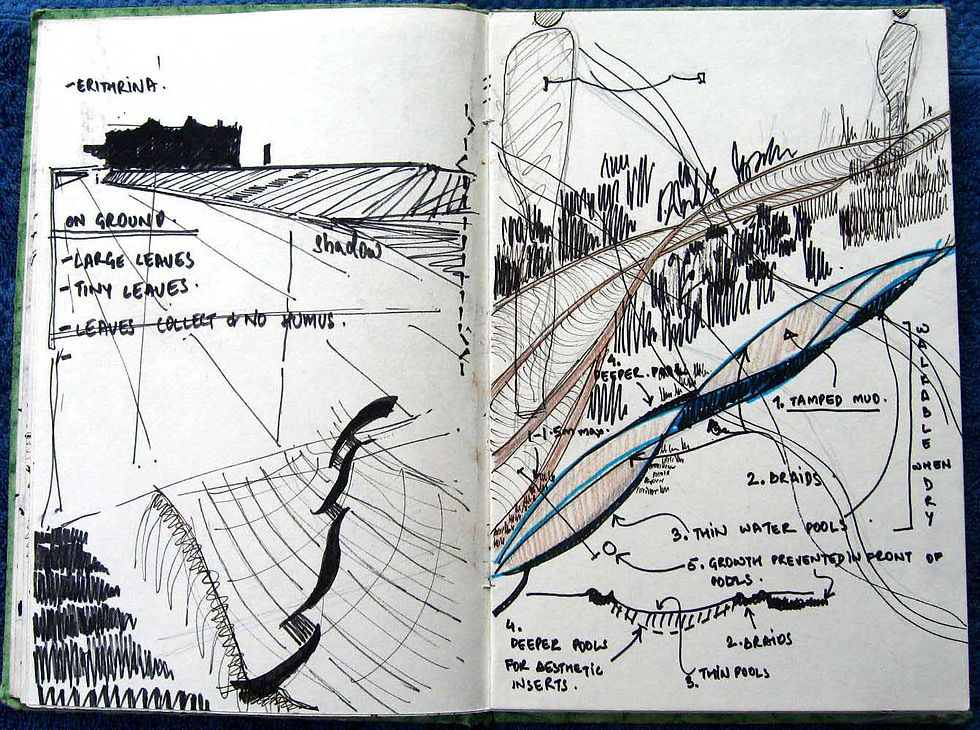 - ERITHRINA'
ON GROUND.
- LARGE LEAVES
- TINY LEAVES.
- LEAVES COLLECT & NO HUMUS.
shadow
4.
DEEPER POOL
1-1.5m max.
1. TAMPED MUD.
2. BRAIDS
3. THIN WATER POOLS
5. GROWTH PREVENTED IN FRONT OF
POOLS.
WALKABLE WHEN DRY
4.
DEEPER POOLS
FOR AESTHETIC
INSERTS.
2. BRAIDS
3. THIN POOLS